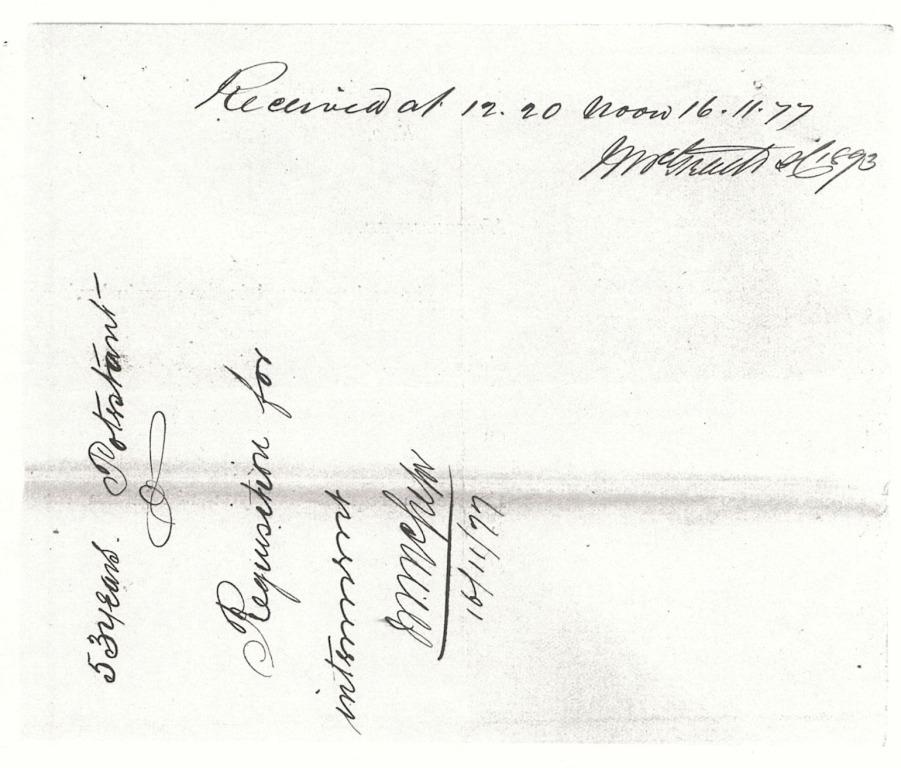 Received at 12.20 noon 16.11.77
1893
53 years. Protestant
Requisition for
interment
16/11/77